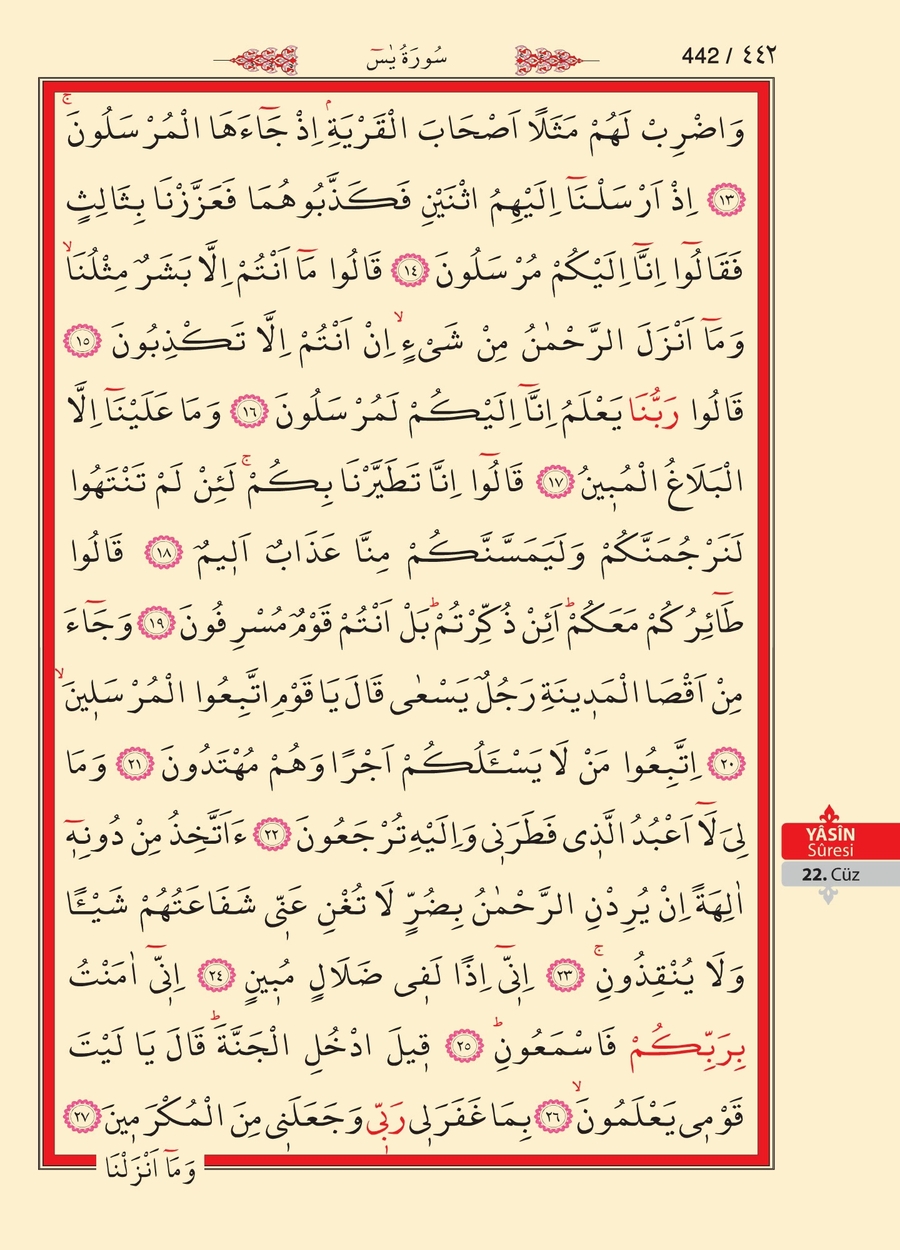 سُورَةُ يٰسٓ
442 / ٤٤٢
وَاضْرِبْ لَهُمْ مَثَلًا اَصْحَابَ الْقَرْيَةِۢ اِذْ جَٓاءَهَا الْمُرْسَلُونَۚ
﴿١٣﴾ اِذْ اَرْسَلْنَٓا اِلَيْهِمُ اثْنَيْنِ فَكَذَّبُوهُمَا فَعَزَّزْنَا بِثَالِثٍ
فَقَالُٓوا اِنَّٓا اِلَيْكُمْ مُرْسَلُونَ ﴿١٤﴾ قَالُوا مَٓا اَنْتُمْ اِلَّا بَشَرٌ مِثْلُنَاۙ
وَمَٓا اَنْزَلَ الرَّحْمٰنُ مِنْ شَيْءٍۙ اِنْ اَنْتُمْ اِلَّا تَكْذِبُونَ ﴿١٥﴾
قَالُوا رَبُّنَا يَعْلَمُ اِنَّٓا اِلَيْكُمْ لَمُرْسَلُونَ ﴿١٦﴾ وَمَا عَلَيْنَٓا اِلَّا
الْبَلَاغُ الْمُبٖينُ ﴿١٧﴾ قَالُٓوا اِنَّا تَطَيَّرْنَا بِكُمْۚ لَئِنْ لَمْ تَنْتَهُوا
لَنَرْجُمَنَّكُمْ وَلَيَمَسَّنَّكُمْ مِنَّا عَذَابٌ اَلٖيمٌ ﴿١٨﴾ قَالُوا
طَٓائِرُكُمْ مَعَكُمْؕ اَئِنْ ذُكِّرْتُمْؕ بَلْ اَنْتُمْ قَوْمٌ مُسْرِفُونَ ﴿١٩﴾ وَجَٓاءَ
مِنْ اَقْصَا الْمَدٖينَةِ رَجُلٌ يَسْعٰى قَالَ يَا قَوْمِ اتَّبِعُوا الْمُرْسَلٖينَۙ
﴿٢٠﴾ اِتَّبِعُوا مَنْ لَا يَسْـَٔلُكُمْ اَجْرًا وَهُمْ مُهْتَدُونَ ﴿٢١﴾ وَمَا
لِىَ لَٓا اَعْبُدُ الَّذٖى فَطَرَنٖى وَاِلَيْهِ تُرْجَعُونَ ﴿٢٢﴾ ءَاَتَّخِذُ مِنْ دُونِهٖٓ
اٰلِهَةً اِنْ يُرِدْنِ الرَّحْمٰنُ بِضُرٍّ لَا تُغْنِ عَنّٖى شَفَاعَتُهُمْ شَيْـًٔا
وَلَا يُنْقِذُونِۚ ﴿٢٣﴾ اِنّٖٓى اِذًا لَفٖى ضَلَالٍ مُبٖينٍ ﴿٢٤﴾ اِنّٖٓى اٰمَنْتُ
بِرَبِّكُمْ فَاسْمَعُونِؕ ﴿٢٥﴾ قٖيلَ ادْخُلِ الْجَنَّةَؕ قَالَ يَا لَيْتَ
قَوْمٖى يَعْلَمُونَۙ ﴿٢٦﴾ بِمَا غَفَرَ لٖى رَبّٖى وَجَعَلَنٖى مِنَ الْمُكْرَمٖينَ ﴿٢٧﴾
وَمَٓا اَنْزَلْنَا
YÂSÎN
Sûresi
22. Cüz